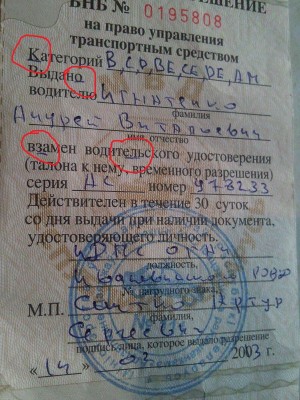 ВНБ № 0195808
на право управления
транспортным средством
Категорий В, С, D, ВЕ, СЕ, DE, АМ
Выдано
водителю Игнатенко
фамилия
Андрей Витальевич
имя, отчество
взамен водительского удостоверения
(талона к нему, временного разрешения)
серия АС номер 973233
Действителен в течение 30 суток
со дня выдачи при наличии документа,
удостоверяющего личность.
должность,
№ нагрудного знака,
М.П. Артур
фамилия,
Сергеевич
подпись лица, которое выдало разрешение
«14» 02 2003 г.